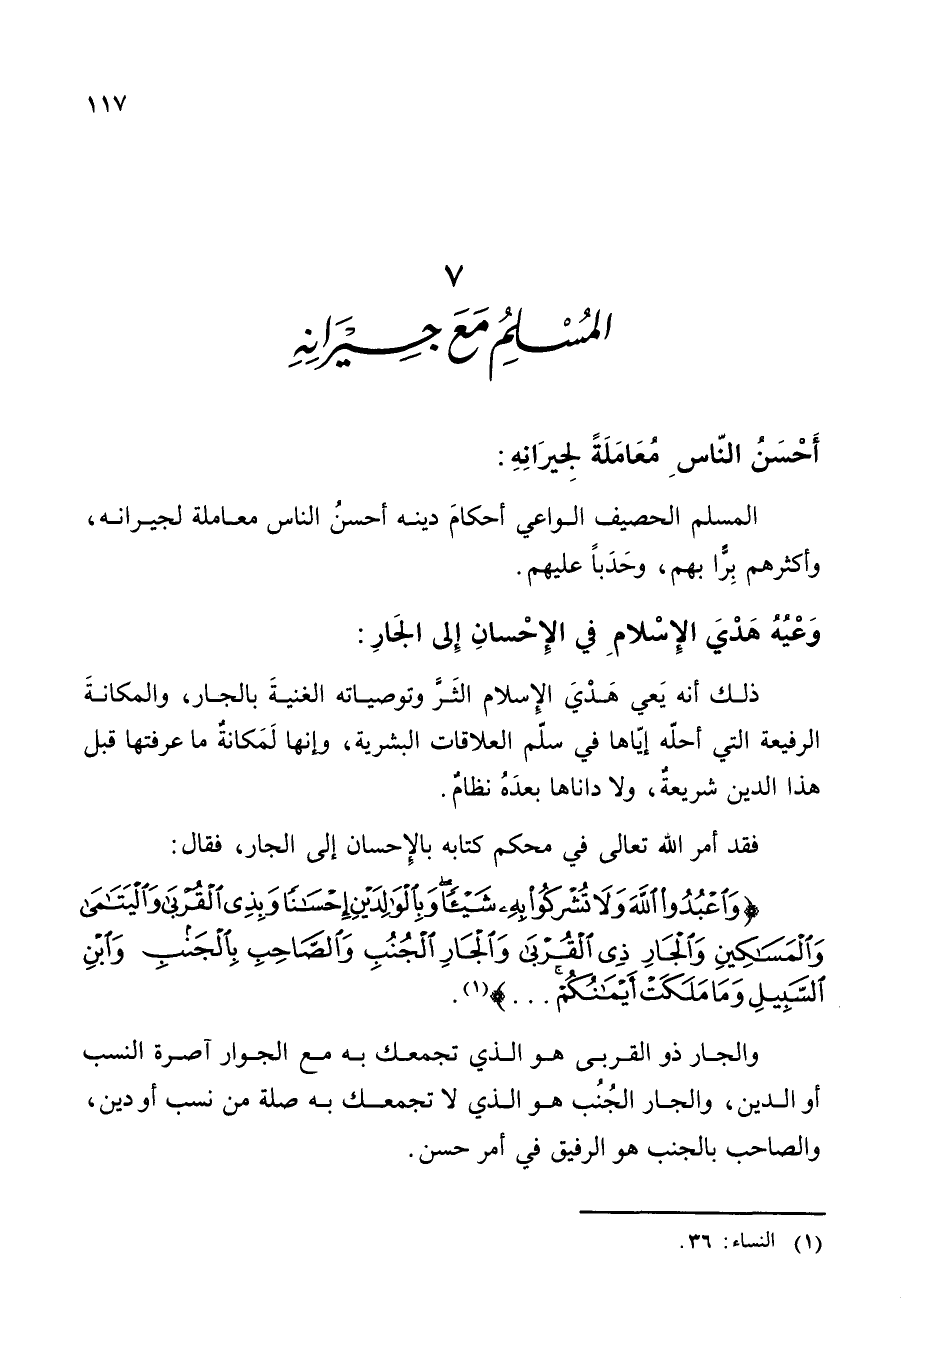 ١١٧
٧
المُسْلِمُ مَعَ جِيْرَانِهِ
أَحْسَنُ النَّاسِ مُعَامَلَةً لِجيرَانِهِ :
المسلم الحصيف الواعي أحكامَ دينه أحسنُ الناس معاملة لجيرانه،
وأكثرهم بِرًّا بهم، وحَدَباً عليهم.
وَعْيُهُ هَدْيَ الإِسْلامِ في الإِحْسانِ إلى الجَارِ :
ذلك أنه يَعي هَدْيَ الإسلام الثَرَّ وتوصياته الغنيةَ بالجار، والمكانةَ
الرفيعة التي أحلّه إيّاها في سلّم العلاقات البشرية، وإنها لَمَكانةٌ ما عرفتها قبل
هذا الدين شريعةٌ، ولا داناها بعدَهُ نظامٌ.
فقد أمر الله تعالى في محكم كتابه بالإِحسان إلى الجار، فقال:
﴿وَٱعْبُدُوا۟ ٱللَّهَ وَلَا تُشْرِكُوا۟ بِهِۦ شَيْـًٔا ۖ وَبِٱلْوَٰلِدَيْنِ إِحْسَـٰنًا وَبِذِى ٱلْقُرْبَىٰ وَٱلْيَتَـٰمَىٰ
وَٱلْمَسَـٰكِينِ وَٱلْجَارِ ذِى ٱلْقُرْبَىٰ وَٱلْجَارِ ٱلْجُنُبِ وَٱلصَّاحِبِ بِٱلْجَنۢبِ وَٱبْنِ
ٱلسَّبِيلِ وَمَا مَلَكَتْ أَيْمَـٰنُكُمْ ۚ . . . ﴾(١).
والجار ذو القربى هو الذي تجمعك به مع الجوار آصرة النسب
أو الدين، والجار الجُنُب هو الذي لا تجمعك به صلة من نسب أو دين،
والصاحب بالجنب هو الرفيق في أمر حسن.
(١) النساء: ٣٦.